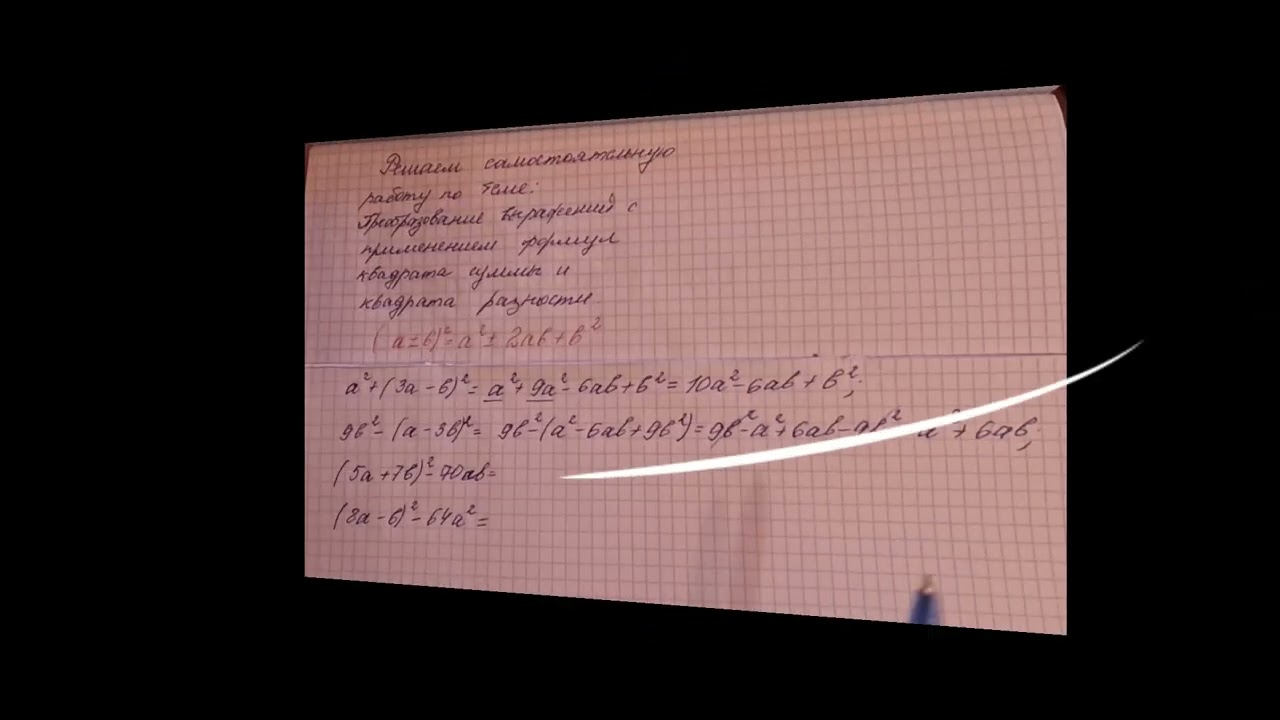 Решаем самостоятельную
работу по теме:
Преобразование выражений с
применением формул
квадрата суммы и
квадрата разности.
(a±b)²=a²±2ab+b²
a²+(3a-b)²= a²+9a²-6ab+b²=10a²-6ab+b²;
9b²-(a-3b)²= 9b²-(a²-6ab+9b²)=9b²-a²+6ab-9b² a²+6ab;
(5a+7b)²-70ab=
(8a-b)²-64a²=